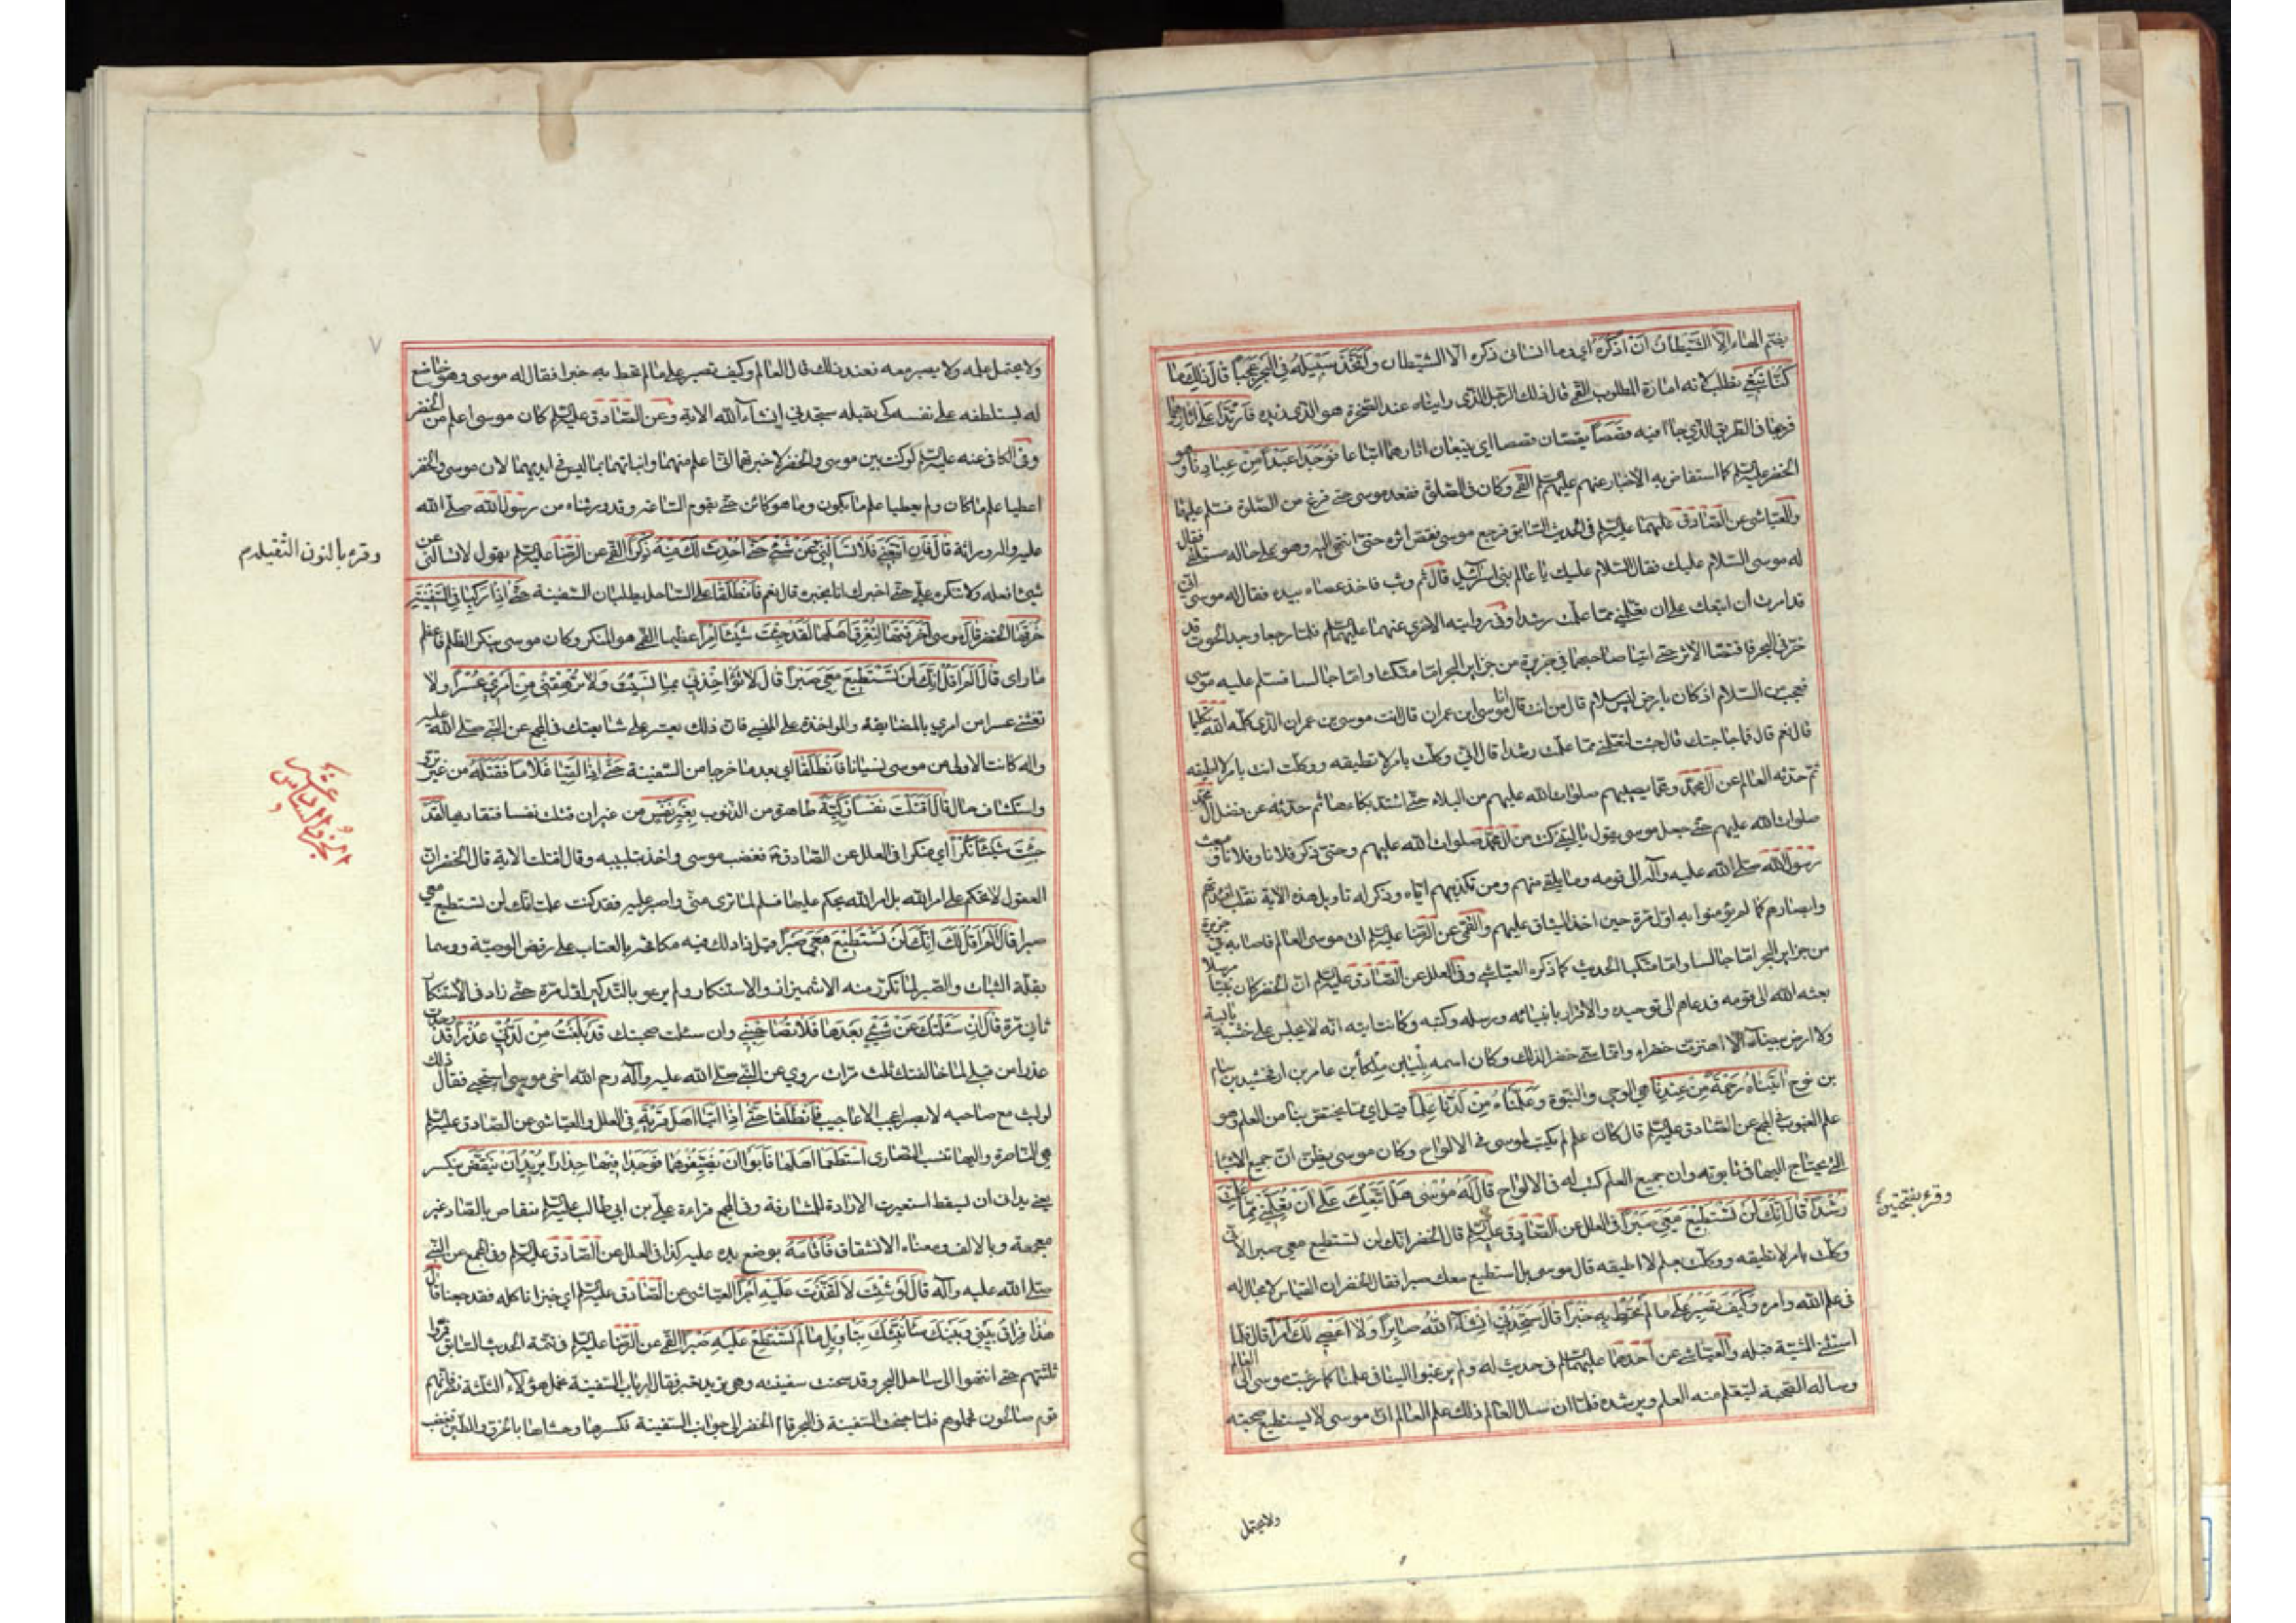 بفتح الهاء اِلَّا الشَّيْطَانُ اَنْ اَذْكُرَهُ اي وما انساني ذكره الا الشيطان وَاتَّخَذَ سَبِيلَهُ فِي الْبَحْرِ عَجَباً قَالَ ذٰلِكَ مَا
كُنَّا نَبْغِ نطلب لانه امارة المطلوب القمي قال ذلك الرجل الذي رايناه عند الصخرة هو الذي نريده فَارْتَدَّا عَلٰى اٰثَارِهِمَا
فرجعا في الطريق الذي جاءا فيه قَصَصاً يقصان قصصا اي يتبعان اثارهما اتباعا فَوَجَدَا عَبْداً مِنْ عِبَادِنَا وهو
الخضر عليه السلم كما استفاض به الاخبار عنهم عليهم السلم القمي وكان في الصلوة فقعد موسى حتى فرغ من الصلوة فسلم عليهما
والعياشي عن الصادق عليهما عليه السلم في الحديث السابق فرجع موسى يقص اثره حتى انتهى اليه وهو على حاله مستلقي فقال
له موسى السلام عليك فقال السلام عليك يا عالم بني اسرائيل قال ثم وثب فاخذ عصاه بيده فقال له موسى اني
قد امرت ان اتبعك على ان تعلمني مما علمت رشدا وفي روايته الاخرى عنهما عليهما السلم فلما رجعا وجد الحوت قد
خر في البحر فاقتصا الاثر حتى اتيا صاحبهما في جزيرة من جزاير البحر اما متكئا واما جالسا فسلم عليه موسى
فعجب من السلام اذ كان بارض ليس سلام قال من انت قال انا موسى ابن عمران قال انت موسى بن عمران الذي كلمه الله تكليما
قال نعم قال فما حاجتك قال جئت لتعلمني مما علمت رشدا قال اني وكلت بامر لا تطيقه ووكلت انت بامر لا اطيقه
ثم حدثه العالم عن ال محمد وعما يصيبهم صلوات الله عليهم من البلاء حتى اشتد بكاءهما ثم حدثه عن فضل ال محمد
صلوات الله عليهم حتى جعل موسى يقول يا ليتني كنت من ال محمد صلوات الله عليهم وحتى ذكر فلانا وفلانا و مبعث
رسول الله صلى الله عليه وآله الى قومه وما يلقى منهم ومن تكذيبهم اياه وذكر له تاويل هذه الاية نقلب افئدتهم
وابصارهم كما لم يؤمنوا به اول مرة حين اخذ الميثاق عليهم والقمي عن الرضا عليه السلم اتى موسى العالم فاصابه في جزيرة
من جزاير البحر اما جالسا واما متكئا الحديث كما ذكره العياشي وفي العلل عن الصادق عليه السلم ان الخضر كان نبيا مرسلا
بعثه الله الى قومه فدعاهم الى توحيده والاقرار بانبيائه ورسله وكتبه وكانت ايته انه لا يجلس على خشبة يابسة
ولا ارض بيضاء الا اهتزت خضراء وانما سمي خضرا لذلك وكان اسمه بليا بن ملكا بن عامر بن ارفخشيد بن سام
بن نوح اٰتَيْنَاهُ رَحْمَةً مِنْ عِنْدِنَا هي الوحي والنبوة وَعَلَّمْنَاهُ مِنْ لَدُنَّا عِلْماً قيل اي مما يختص بنا من العلم وهو
علم الغيوب في المجمع عن الصادق عليه السلم قال كان علم لم يكتب لموسى في الالواح وكان موسى يظن ان جميع الاشياء
التي يحتاج اليها في تابوته وان جميع العلم كتب له في الالواح قَالَ لَهُ مُوسٰى هَلْ اَتَّبِعُكَ عَلٰى اَنْ تُعَلِّمَنِ مِمَّا عُلِّمْتَ
رُشْداً قَالَ اِنَّكَ لَنْ تَسْتَطِيعَ مَعِيَ صَبْراً في العلل عن الصادق عليه السلم قال الخضر انك لن تستطيع معي صبرا لاني
وكلت بامر لا تطيقه ووكلت بعلم لا اطيقه قال موسى بل استطيع معك صبرا فقال الخضر ان القياس لا مجال له
في علم الله وامره وَكَيْفَ تَصْبِرُ عَلٰى مَا لَمْ تُحِطْ بِهِ خُبْراً قَالَ سَتَجِدُنِي اِنْ شَاءَ اللهُ صَابِراً وَلَا اَعْصِي لَكَ اَمْراً قال فلما
استثنى المشية قبله والعياشي عن احدهما عليهما السلم في حديث له ولم يرغبوا الينا في علمنا كما رغب موسى الى العالم
وساله الصحبة ليتعلم منه العلم ويرشده فلما ان سال العالم ذلك علم العالم ان موسى لا يستطيع صحبته
وقرء بفتحتين
ولا يحتمل
٧
ولا يحتمل علمه ولا يصبر معه فعند ذلك قال العالم وكيف تصبر على ما لم تحط به خبرا فقال له موسى وهو خاضع
له يستلطفه على نفسه كي يقبله ستجدني ان شاء الله الاية وعن الصادق عليه السلم كان موسى اعلم من الخضر
وفي الكافي عنه عليه السلم لو كنت بين موسى والخضر لاخبرتهما اني اعلم منهما وانباتهما بما ليس في ايديهما لان موسى والخضر
اعطيا علم ما كان ولم يعطيا علم ما يكون وما هو كائن حتى يقوم الساعة وقد ورثناه من رسول الله صلى الله
عليه واله وراثة قَالَ فَاِنِ اتَّبَعْتَنِي فَلَا تَسْاَلْنِي عَنْ شَيْءٍ حَتّٰى اُحْدِثَ لَكَ مِنْهُ ذِكْراً القمي عن الرضا عليه السلم يقول لا تسالني عن
شيء افعله ولا تنكره علي حتى اخبرك انا بخبره قال نعم فَانْطَلَقَا على الساحل يطلبان السفينة حَتّٰى اِذَا رَكِبَا فِي السَّفِينَةِ
خَرَقَهَا الخضر قَالَ موسى اَخَرَقْتَهَا لِتُغْرِقَ اَهْلَهَا لَقَدْ جِئْتَ شَيْئاً اِمْراً عظيما القمي هو المنكر وكان موسى ينكر الظلم فاعظم
ما راى قَالَ اَلَمْ اَقُلْ اِنَّكَ لَنْ تَسْتَطِيعَ مَعِيَ صَبْراً قَالَ لَا تُؤَاخِذْنِي بِمَا نَسِيتُ وَلَا تُرْهِقْنِي مِنْ اَمْرِي عُسْراً ولا
تغشني عسرا من امري بالمضايقة والمواخذة على المنسي فان ذلك يعسر علي متابعتك في المجمع عن النبي صلى الله عليه
واله كانت الاولى من موسى نسيانا فَانْطَلَقَا اي بعد ما خرجا من السفينة حَتّٰى اِذَا لَقِيَا غُلَاماً فَقَتَلَهُ من غير ترو
واستكشاف حال قَالَ اَقَتَلْتَ نَفْساً زَكِيَّةً طاهرة من الذنوب بِغَيْرِ نَفْسٍ من غير ان قتلت نفسا فتقاد بها لَقَدْ
جِئْتَ شَيْئاً نُكْراً اي منكرا في العلل عن الصادق ع فغضب موسى واخذ بتلبيبه وقال اقتلت الاية قال الخضر ان
العقول لا تحكم على امر الله بل امر الله يحكم عليها فسلم لما ترى مني واصبر عليه فقد كنت علمت انك لن تستطيع معي
صبرا قَالَ اَلَمْ اَقُلْ لَكَ اِنَّكَ لَنْ تَسْتَطِيعَ مَعِيَ صَبْراً قيل زاد لك فيه مكافحة بالعتاب على رفض الوصية ووسما
بقلة الثبات والصبر لما تكرر منه الاشميزاز والاستنكار ولم يرعو بالتذكير اول مرة حتى زاد في الاستنكار
ثاني مرة قَالَ اِنْ سَئَلْتُكَ عَنْ شَيْءٍ بَعْدَهَا فَلَا تُصَاحِبْنِي وان سئلت صحبتك قَدْ بَلَغْتَ مِنْ لَدُنِّي عُذْراً قد وجدت
عذرا من قبلي لما خالفتك ثلث مرات روي عن النبي صلى الله عليه وآله رحم الله اخي موسى استحيى فقال ذلك
لو لبث مع صاحبه لابصر اعجب الاعاجيب فَانْطَلَقَا حَتّٰى اِذَا اَتَيَا اَهْلَ قَرْيَةٍ في العلل والعياشي عن الصادق عليه السلم
هي الناصرة واليها تنسب النصارى اسْتَطْعَمَا اَهْلَهَا فَاَبَوْا اَنْ يُضَيِّفُوهُمَا فَوَجَدَا فِيهَا جِدَاراً يُرِيدُ اَنْ يَنْقَضَّ ينكسر
يعني يدانى ان يسقط استعيرت الارادة للمشارفة وفي المجمع قراءة علي بن ابي طالب عليه السلم ينقاص بالصاد غير
معجمة وبالالف ومعناه الانشقاق فَاَقَامَهُ بوضع يده عليه كذا في العلل عن الصادق عليه السلم وفي المجمع عن النبي
صلى الله عليه وآله قَالَ لَوْ شِئْتَ لَاتَّخَذْتَ عَلَيْهِ اَجْراً العياشي عن الصادق عليه السلم اي خبزا ناكله فقد جعنا قَالَ
هٰذَا فِرَاقُ بَيْنِي وَبَيْنِكَ سَاُنَبِّئُكَ بِتَاْوِيلِ مَا لَمْ تَسْتَطِعْ عَلَيْهِ صَبْراً القمي عن الرضا عليه السلم في تتمة الحديث السابق فمروا
ثلثتهم حتى انتهوا الى ساحل البحر وقد شحنت سفينة وهي تريد تعبر فقال ارباب السفينة نحمل هؤلاء الثلثة نفر فانهم
قوم صالحون فحملوهم فلما جنحت السفينة في البحر قام الخضر الى جوانب السفينة فكسرها وحشاها بالخرق والطين فغضب
وقرء بالنون الثقيلة م
الجزو السادس
عشر